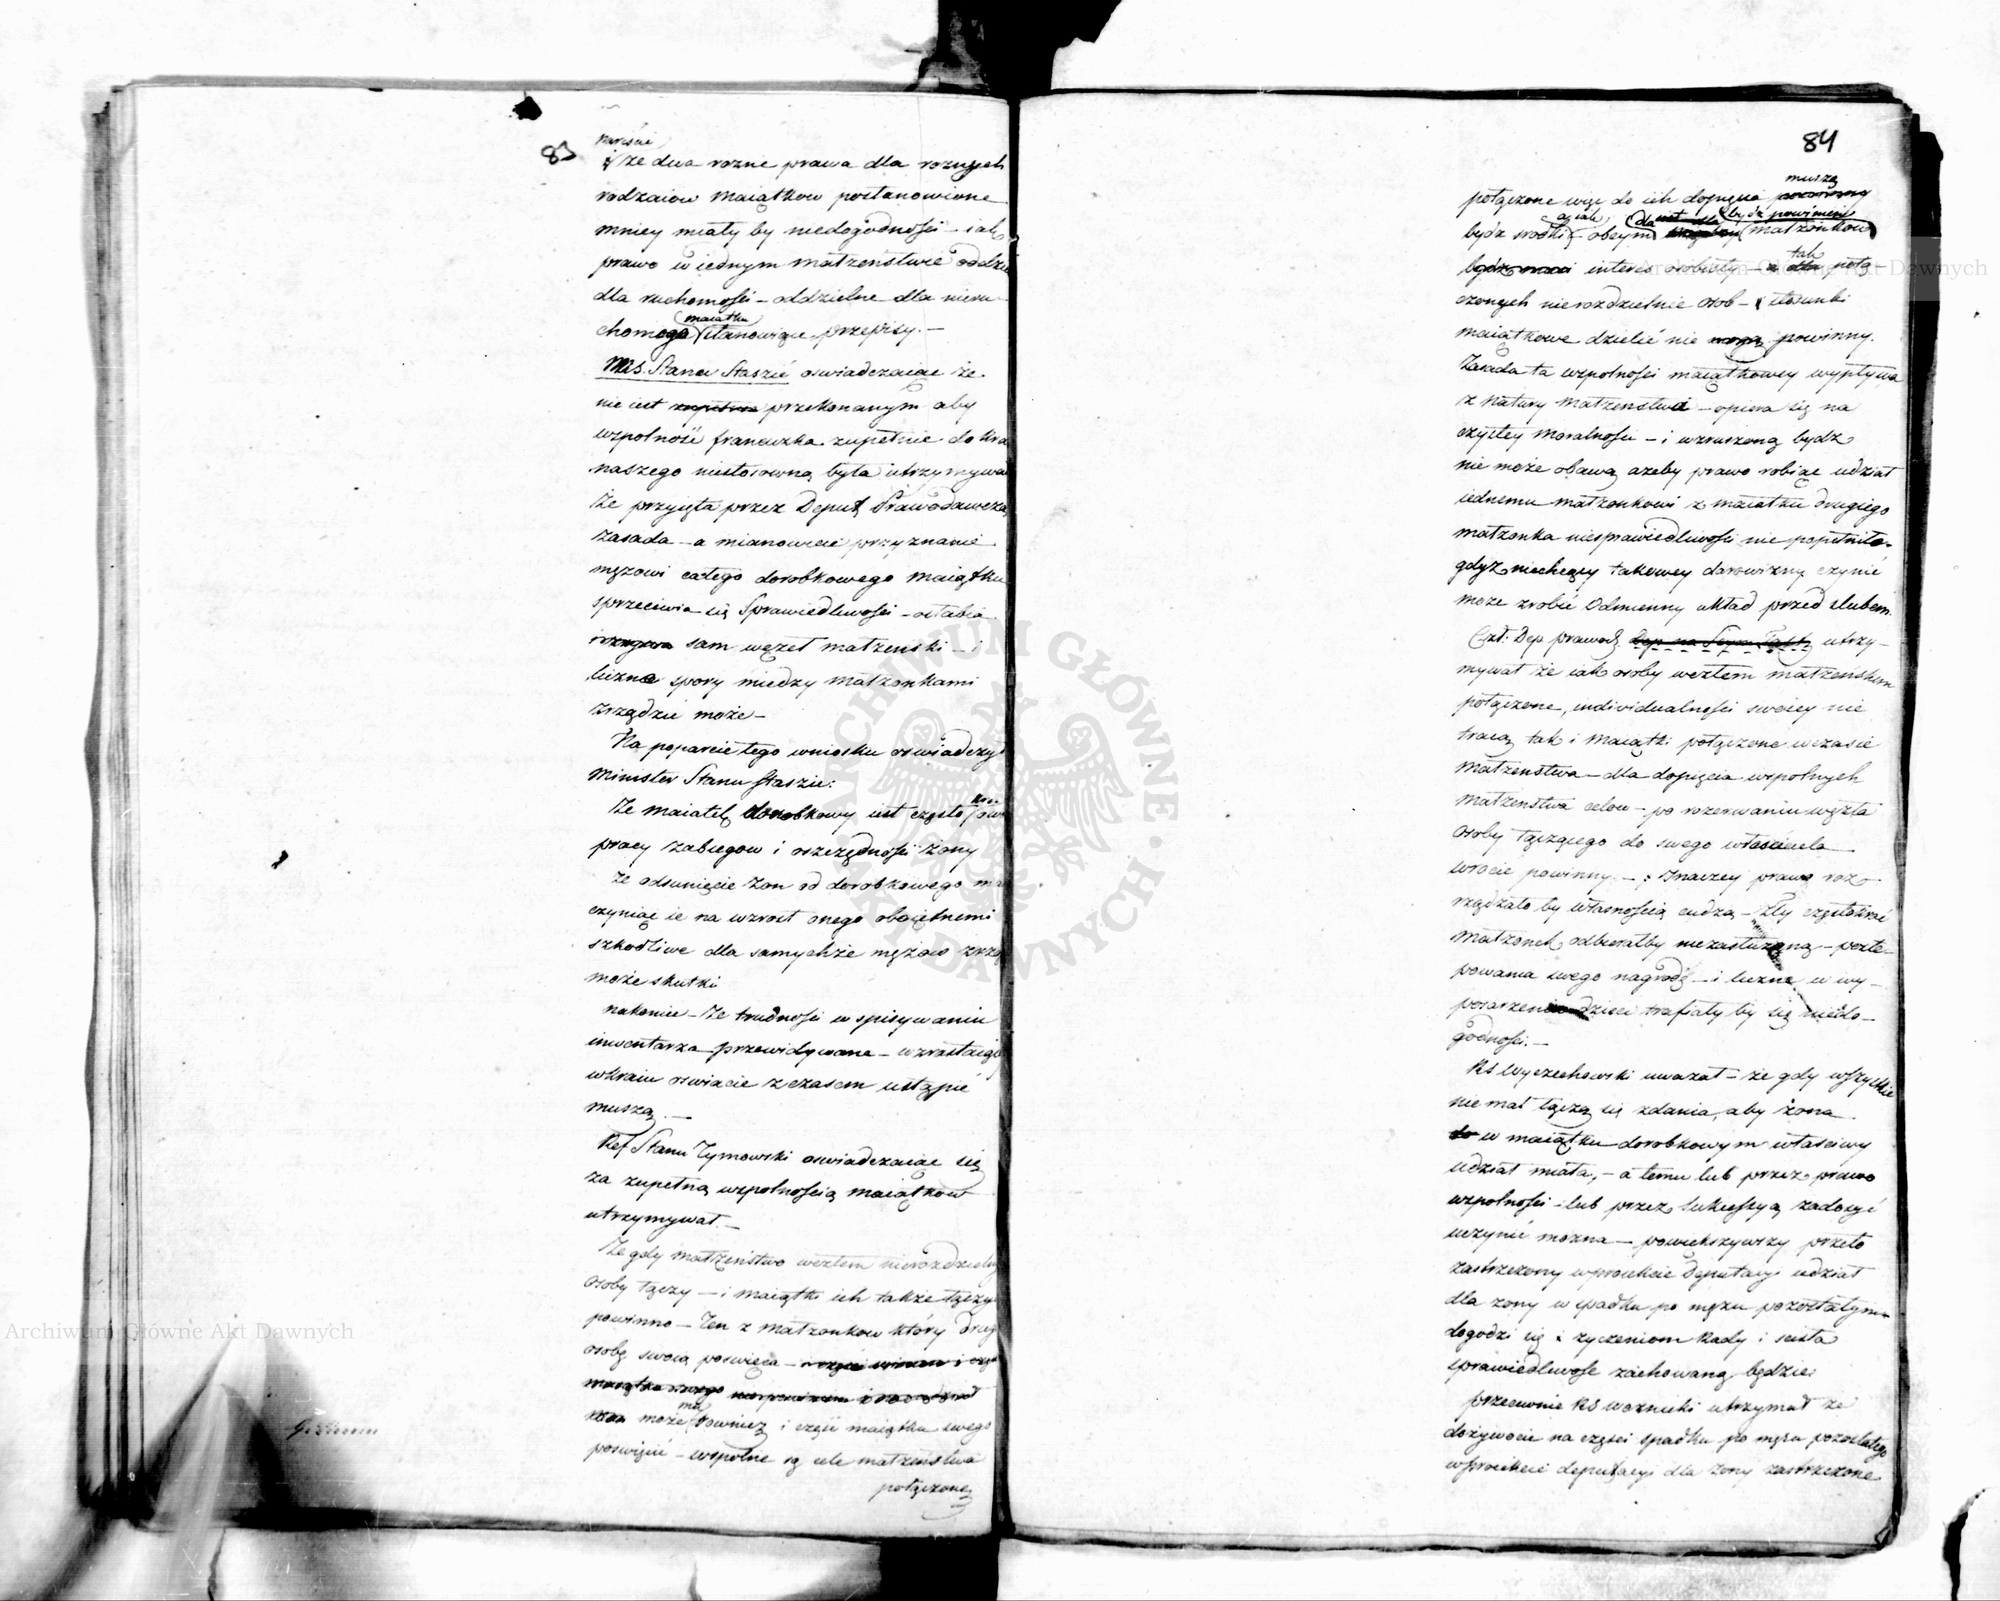 83
nareście
że dwa rozne prawa dla roznych
rodzaiow maiątkow postanowione
mniey miały by niedogodności – iak
prawo w iednym małżenstwie oddziel
dla ruchomości – oddzielne dla nieru-
chomego maiątku stanowiące przepisy. –
Mts. Stanu Staszic oswiadczaiąc że
nie iest zupełnie przekonanym aby
wspolność francuzka zupełnie do kra
naszego niestosowną była utrzymywał
że przyięta przez Deput Prawodawczą
zasada – a mianowicie przyznanie
mężowi całego dorobkowego maiątku
sprzeciwia się Sprawiedliwości – osłabia
sam węzeł małżenski – i
liczne spory miedzy małżonkami
zrządzić może –
Na poparcie tego wniosku oswiadczył
Minister Stanu Staszic:
że maiatek dorobkowy iest często
pracy zabiegow i oszczędności żony
że odsunięcie żon od dorobkowego ma
czyniąc ie na wzrost onego oboiętnemi
szkodliwe dla samychże mężow zrzą
może skutki
nakoniec – że trudności w spisywaniu
inwentarza przewidywane – w wzrastaiący
w kraiu oswiacie z czasem ustąpić
muszą. –
Ref Stanu Tymowski oswiadczaiąc się
za zupełną wspolnością maiątkow
utrzymywał –
że gdy małżeństwo węzłem nierozdzielny
osoby łączy – i maiątki ich także łączyć
powinno – Ten z małżonkow który drug
osobę swoią poswięca –
maiątku swego
może ma rownież i część maiątku swego
poswięcić – wspolne są cele małżeństwa
połączone
84
połączone więc do ich dopięcia powinny muszą
bydz srodki obeym małżonkow
bydz powinien
interes osobisty – a tak połą-
czonych nierozdzielnie osob – stosunki
maiątkowe dzielić nie mogą powinny.
Zasada ta wspolności maiątkowey wypływa
z natury małżenstwa – opiera się na
czystey moralności – i wzruszoną bydz
nie może obawą azeby prawo robiąc udział
iednemu małżonkowi z maiątku drugiego
małżonka niesprawiedliwości nie popełniło –
gdyż niechcący takowey darowizny czynić
może zrobić odmienny układ przed slubem.
Czł: Dep prawod. utrzy-
mywał że iak osoby węzłem małżeńskim
połączone, individualności swoiey nie
tracą tak i maiątki połączone w czasie
małżenstwa – dla dopięcia wspolnych
małżenstwa celow – po rozerwaniu węzła
osoby łączącego do swego właściciela
wrocić powinny. – ; Inaczey prawo roz-
rządzało by własnością cudzą – Zły częstokroć
małżonek odbierałby niezasłużoną – postę-
powania swego nagrodę – i liczne w wy-
posażeniu dzieci trafiały by się niedo-
godności. –
RS Wyczechowski uważał – że gdy wszyskie
niemal łączą się zdania, aby żona
w maiątku dorobkowym właściwy
udział miała, – a temu lub przez prawo
wspolności – lub przez sukcessyą zadosyć
uczynić można – powiekszywszy przeto
zastrzeżony w proiekcie Deputacyi udział
dla żony w spadku po mężu pozostałym
dogodzi się i życzeniom Rady i scisła
sprawiedliwość zachowaną będzie:
przeciwnie RS Woznicki utrzymał że
dożywocie na części spadku po mężu pozostałego
w proiekcie deputacyi dla żony zastrzeżone
ARCHIWUM GŁÓWNE AKT DAWNYCH
Archiwum Główne Akt Dawnych
Archiwum Główne Akt Dawnych